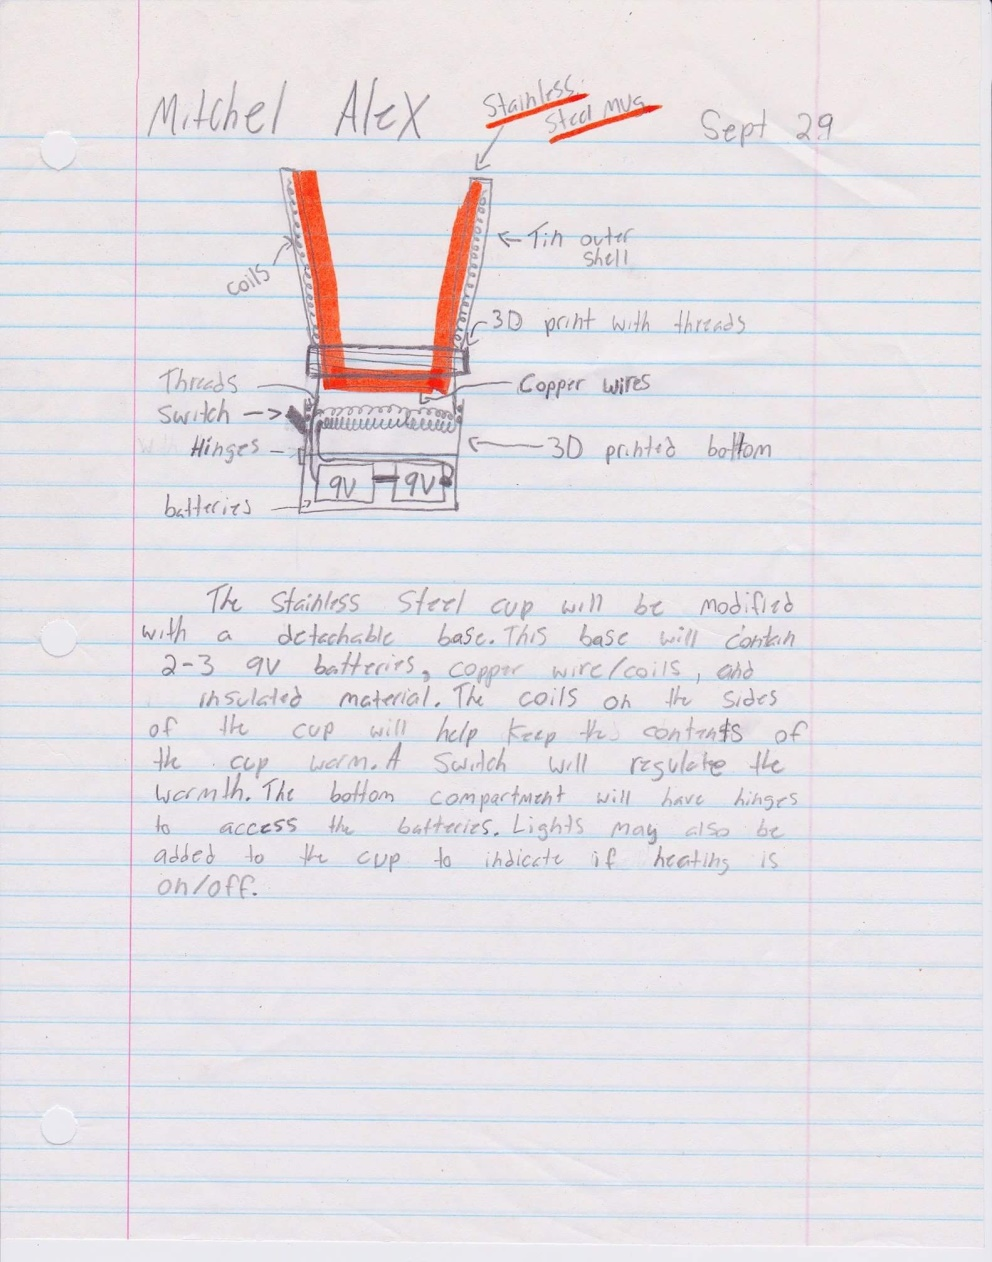 Mitchel Alex
Stainless
Steel Mug
Sept 29
Tin outer
shell
coils
3D print with threads
Threads
Copper wires
Switch
Hinges
3D printed bottom
9V 9V
batteries
The Stainless Steel cup will be modified
with a detachable base. This base will contain
2-3 9V batteries, copper wire/coils, and
insulated material. The coils on the sides
of the cup will help keep the contents of
the cup warm. A switch will regulate the
warmth. The bottom compartment will have hinges
to access the batteries. Lights may also be
added to the cup to indicate if heating is
on/off.